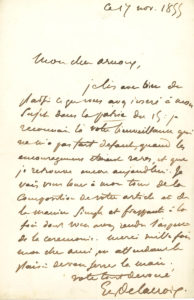 ce 17 nov. 1855
Mon cher arnoux,
je lis avec bien du
plaisir ce que vous avez inséré à mon
sujet dans la patrie du 15: je
reconnais là votre bienveillance qui
ne m'a pas fait défaut quand les
encouragements étaient rares, et que
je retrouve encore aujourd'hui. Je
vais vous louer à mon tour de la
composition de votre article et de
la manière simple et frappante à la
fois dont vous avez rendu
de la cérémonie. merci mille fois
mon cher ami en attendant le
plaisir de vous serrer la main.
votre tout dévoué
Eug Delacroix